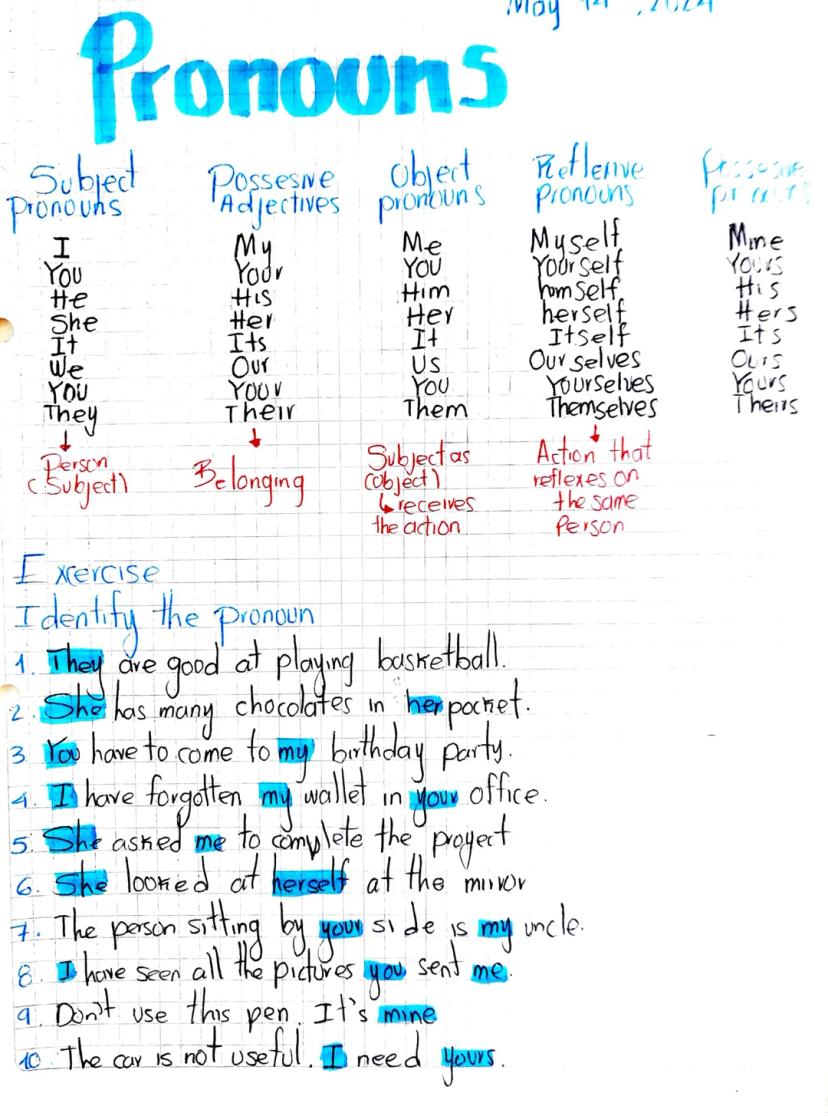 May 14, 2024
Pronouns
Subject pronouns
Possesive Adjectives
Object pronouns
Reflexive pronouns
Possesive
I My Me Myself Mine
You Your You Yourself Yours
He His Him homself His
She Her Her herself Hers
It Its It Itself Its
We Our Us Ourselves Ours
You Your You Yourselves Yours
They Their Them Themselves Theirs
Person (Subject)
Belonging
Subject as (object) ↳ receives the action
Action that reflexes on the same Person
Exercise
Identify the pronoun
1. They are good at playing basketball.
2. She has many chocolates in her pocket.
3. You have to come to my birthday party.
4. I have forgotten my wallet in your office.
5. She asked me to complete the proyect
6. She looked at herself at the mirror
7. The person sitting by your side is my uncle.
8. I have seen all the pictures you sent me.
9. Don't use this pen. It's mine
10. The car is not useful. I need yours.